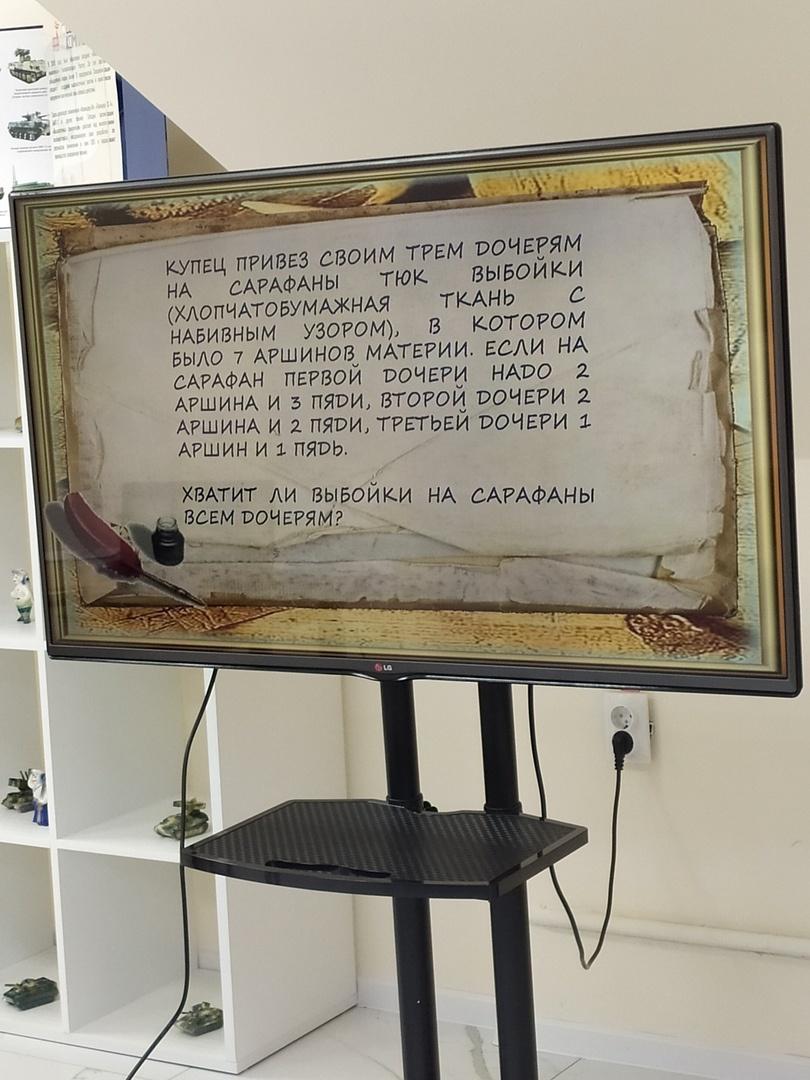 КУПЕЦ ПРИВЕЗ СВОИМ ТРЕМ ДОЧЕРЯМ
НА САРАФАНЫ ТЮК ВЫБОЙКИ
(ХЛОПЧАТОБУМАЖНАЯ ТКАНЬ С
НАБИВНЫМ УЗОРОМ), В КОТОРОМ
БЫЛО 7 АРШИНОВ МАТЕРИИ. ЕСЛИ НА
САРАФАН ПЕРВОЙ ДОЧЕРИ НАДО 2
АРШИНА И 3 ПЯДИ, ВТОРОЙ ДОЧЕРИ 2
АРШИНА И 2 ПЯДИ, ТРЕТЬЕЙ ДОЧЕРИ 1
АРШИН И 1 ПЯДЬ.
ХВАТИТ ЛИ ВЫБОЙКИ НА САРАФАНЫ
ВСЕМ ДОЧЕРЯМ?
LG